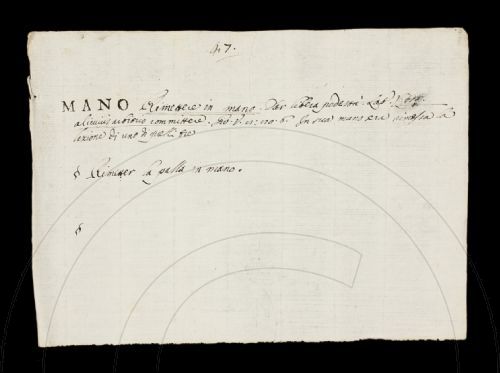 47.
MANO Rimettere in mano. Dar libera podestà. Lat.
alicuius arbitrio committere. In sua mano era rimessa la
lezione di uno di quelli tre
§ Rimetter la palla in mano.
§